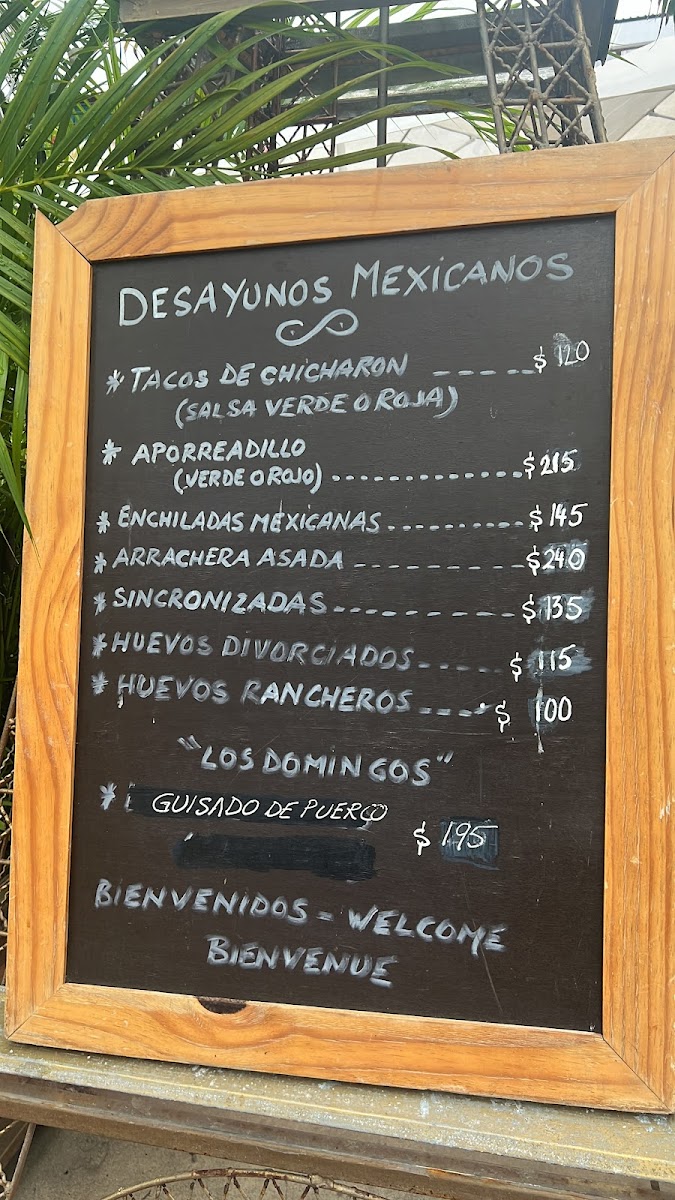 DESAYUNOS MEXICANOS
* TACOS DE CHICHARON ------ $ 120
(SALSA VERDE O ROJA)
* APORREADILLO
(VERDE O ROJO) ................ $ 215
* ENCHILADAS MEXICANAS ............ $ 145
* ARRACHERA ASADA ------------ $ 240
* SINCRONIZADAS ------------ $ 135
* HUEVOS DIVORCIADOS ------ $ 115
* HUEVOS RANCHEROS ----- $ 100
"LOS DOMINGOS"
* GUISADO DE PUERCO
$ 195
BIENVENIDOS = WELCOME
BIENVENUE